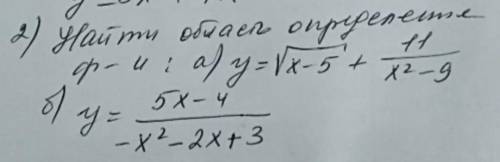 2) Найти область определение
ф-и: а) y=√x-5 + 11/x²-9
б) y= 5x-4/-x²-2x+3